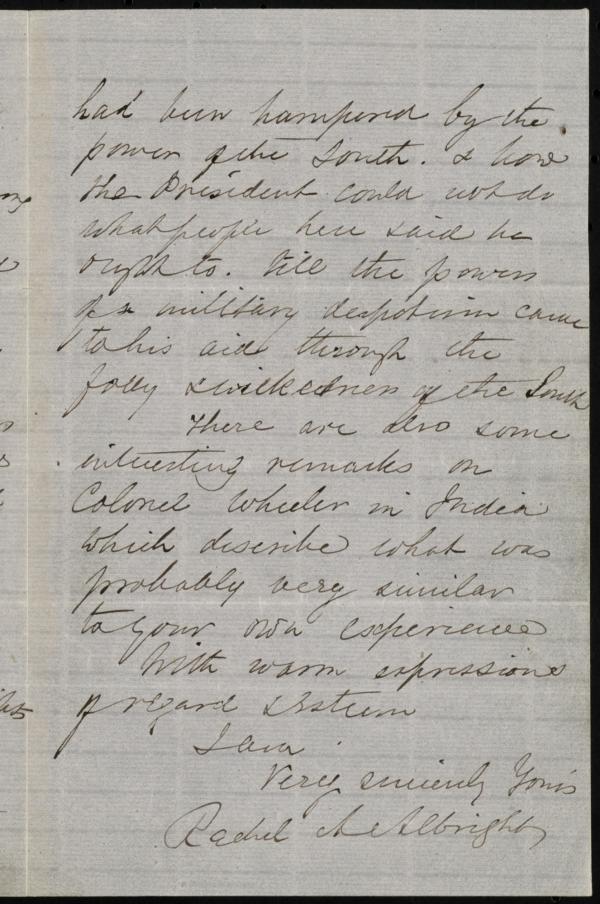 had been hampered by the
power of the South. & how
the President could not do
what people here said he
ought to. till the powers
of a military despotism came
to his aid through the
folly & wickedness of the South
There are also some
interesting remarks on
Colonel Wheeler in India
which describe what was
probably very similar
to your own experience
With warm expressions
of regard & esteem
I am
Very sincerely Yours
Rachel A Albright